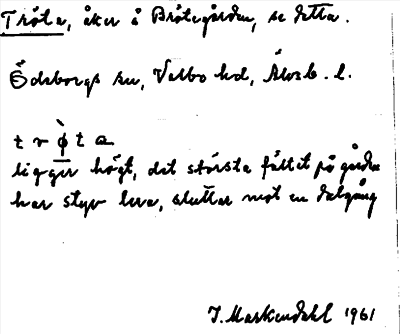 Tröta, åker å Brötegården, se detta.
Ödeborgs sn, Valbo hd, Älvsb. l.
t r ø̀ t a
ligger högt, det största fältet på gården
har styv lera, sluttar mot en dalgång
I. Markendahl 1961